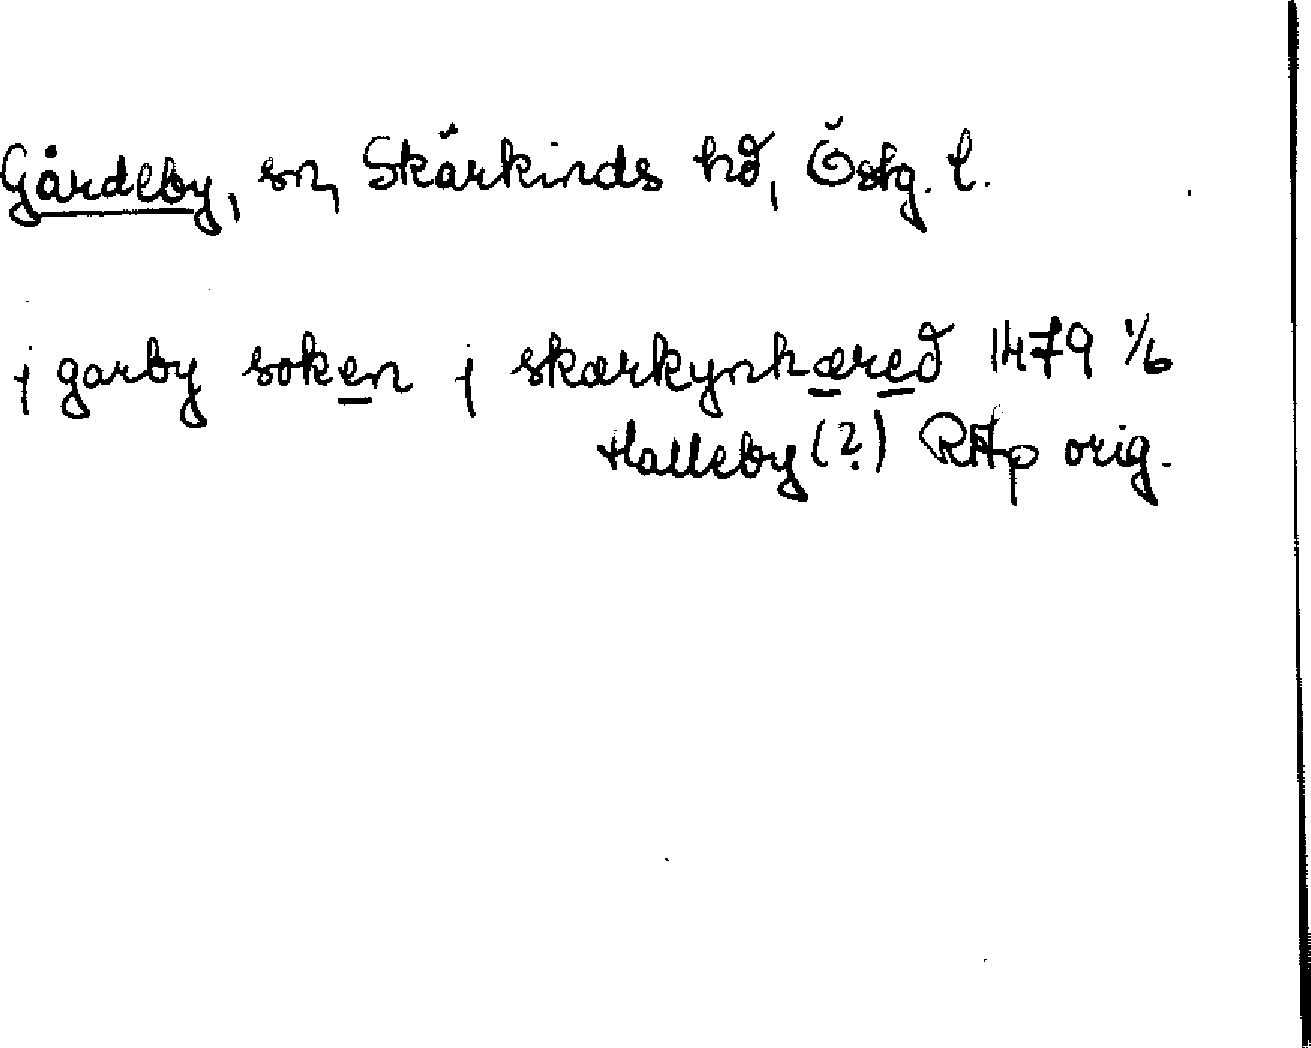 Gårdeby, sn, Skärkinds hd, Östg. l.
j garby soken j skærkynhæred 1479 1/6
Halleby (?) RAp orig.